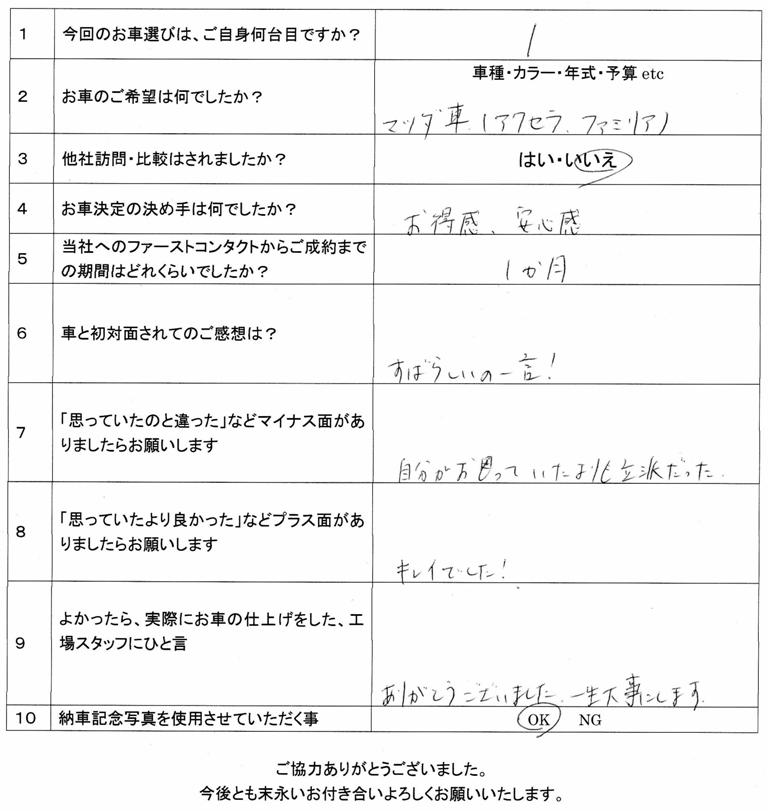 1 今回のお車選びは、ご自身何台目ですか？ 1
車種・カラー・年式・予算 etc
2 お車のご希望は何でしたか？ マツダ車（アクセラ、ファミリア）
3 他社訪問・比較はされましたか？ はい・いいえ
4 お車決定の決め手は何でしたか？ お得感、安心感
5 当社へのファーストコンタクトからご成約まで
の期間はどれくらいでしたか？ 1か月
6 車と初対面されてのご感想は？ すばらしいの一言！
7 「思っていたのと違った」などマイナス面があ
りましたらお願いします
自分がお思っていたよりも立派だった。
8 「思っていたより良かった」などプラス面があ
りましたらお願いします
キレイでした！
9 よかったら、実際にお車の仕上げをした、工
場スタッフにひと言
ありがとうございました。一生大事にします。
10 納車記念写真を使用させていただく事 OK NG
ご協力ありがとうございました。
今後とも末永いお付き合いよろしくお願いいたします。